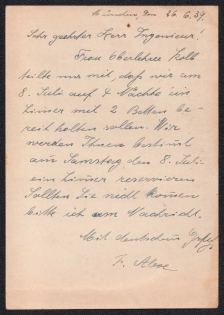 München, den 26.6.39.
Sehr geehrter Herr Ingenieur!
Frau Oberlehrer Kolb
teilte uns mit, daß wir am
8. Juli auf 4 Nächte ein
Zimmer mit 2 Betten be-
reit halten sollen. Wir
werden Ihnen bestimmt
am Samstag den 8. Juli
ein Zimmer reservieren
Sollten Sie nicht kommen
bitte ich um Nachricht.
Mit deutschem Gruß
F.